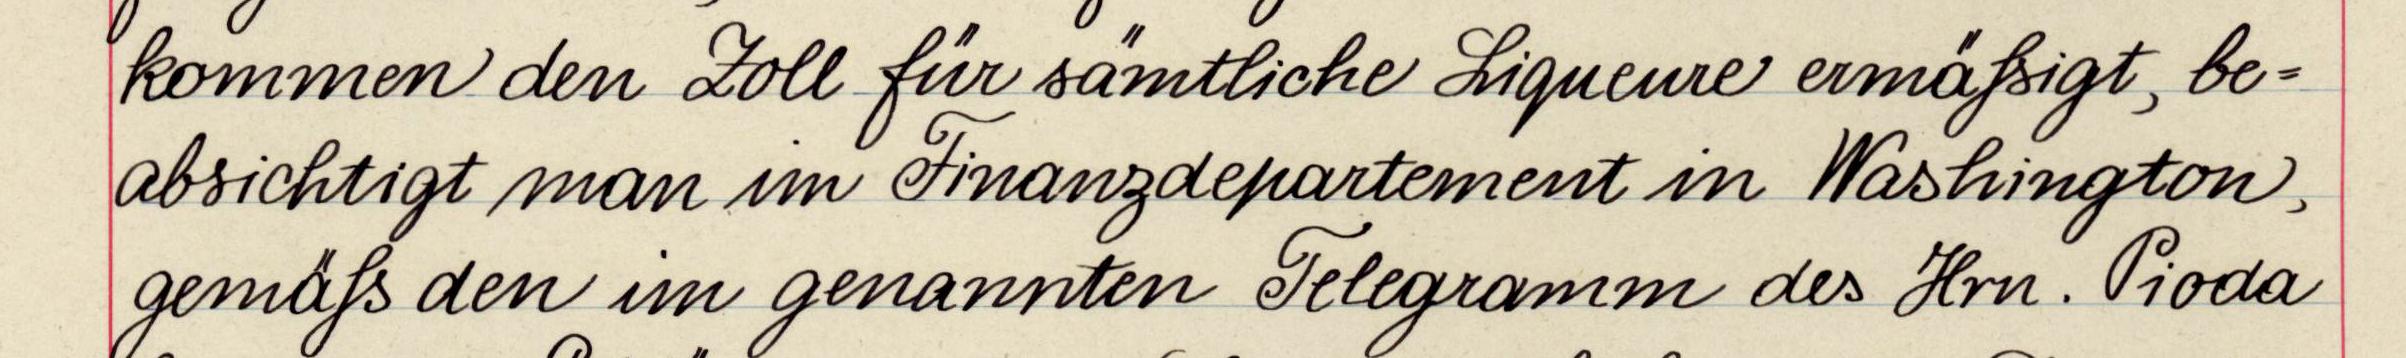 kommen den Zoll für sämtliche Liqueure ermäßigt, be=
absichtigt man im Finanzdepartement in Washington,
gemäß den im genannten Telegramm des Hrn. Pioda